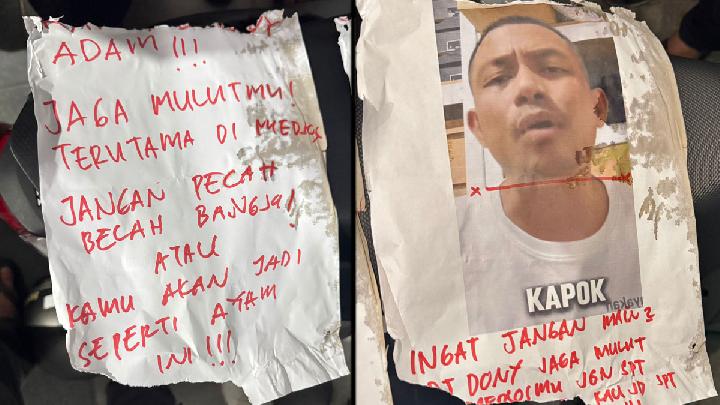 ADAM!!!
JAGA MULUTMU!
TERUTAMA DI
JANGAN PECAH
BECAH BANGSA!
ATAU
KAMU AKAN JADI
SEPERTI AYAM
INI!!!
KAPOK
INGAT JANGAN
DONY JAGA MULUT
JGN SPT
KAU JD SPT